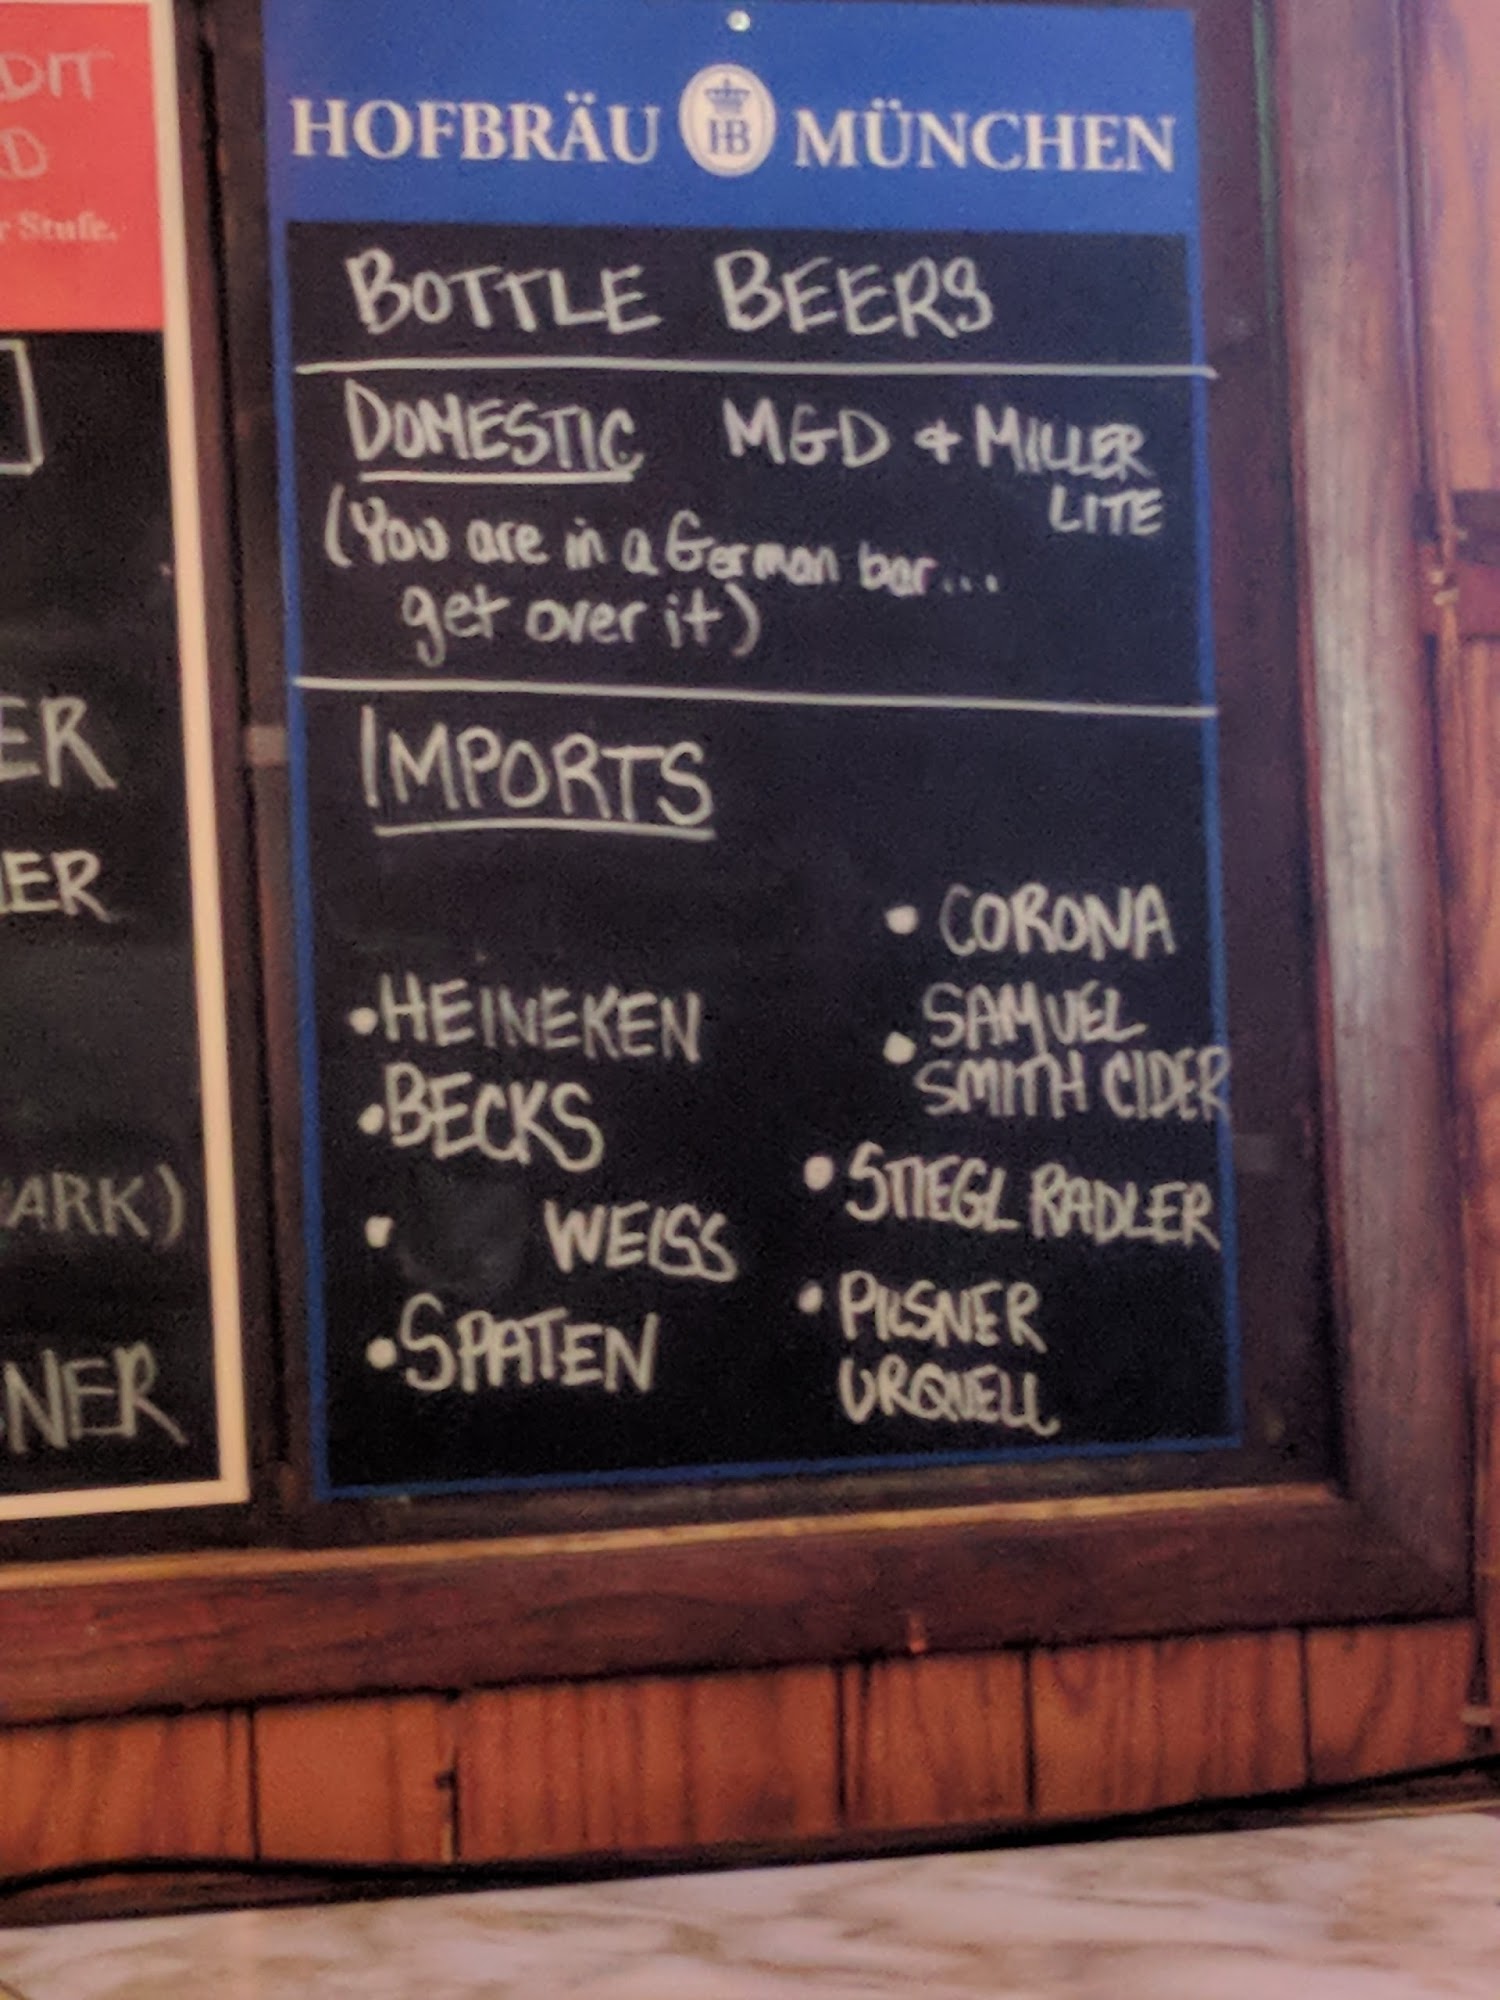 DIT
D
r Stufe.
ER
ER
ARK)
NER
HOFBRÄU HB MÜNCHEN
BOTTLE BEERS
DOMESTIC MGD & MILLER
LITE
(You are in a German bar...
get over it)
IMPORTS
• HEINEKEN
• BECKS
• WEISS
• SPATEN
• CORONA
• SAMUEL
SMITH CIDER
• STIEGL RADLER
• PILSNER
URQUELL